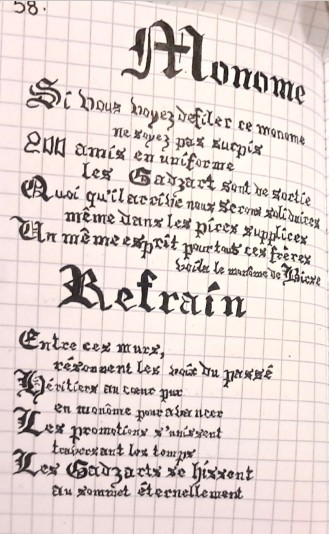 58.
Monome
Si vous voyez défiler ce monome
ne soyez pas surpis
200 amis en uniforme
les Gadzart sont de sortie
Quoi qu'il arrive nous serons solidaires
même dans les pires supplices
Un même esprit pour tous ces frères
voila le monôme de
Refrain
Entre ces murs,
résonnent les voix du passé
Héritiers au cœur pur
en monôme pour avancer
Les promotions s'unissent
traversant les temps
Les Gadzarts se hissent
au sommet éternellement